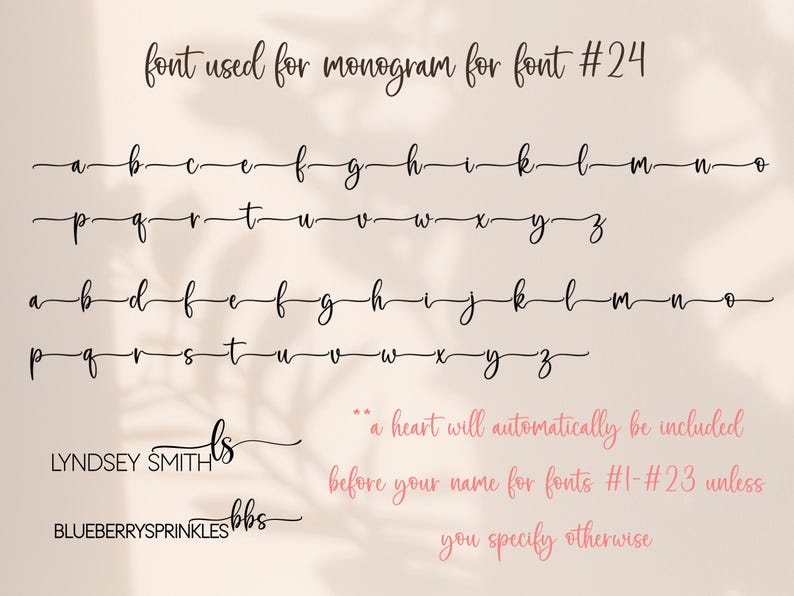 font used for monogram for font #24
a b c e f g h i k l m n o
p q r t u v w x y z
a b d f e f g h i j k l m n o
p q r s t u v w x y z
ls
LYNDSEY SMITH
bbs
BLUEBERRYSPRINKLES
**a heart will automatically be included
before your name for fonts #1-#23 unless
you specify otherwise